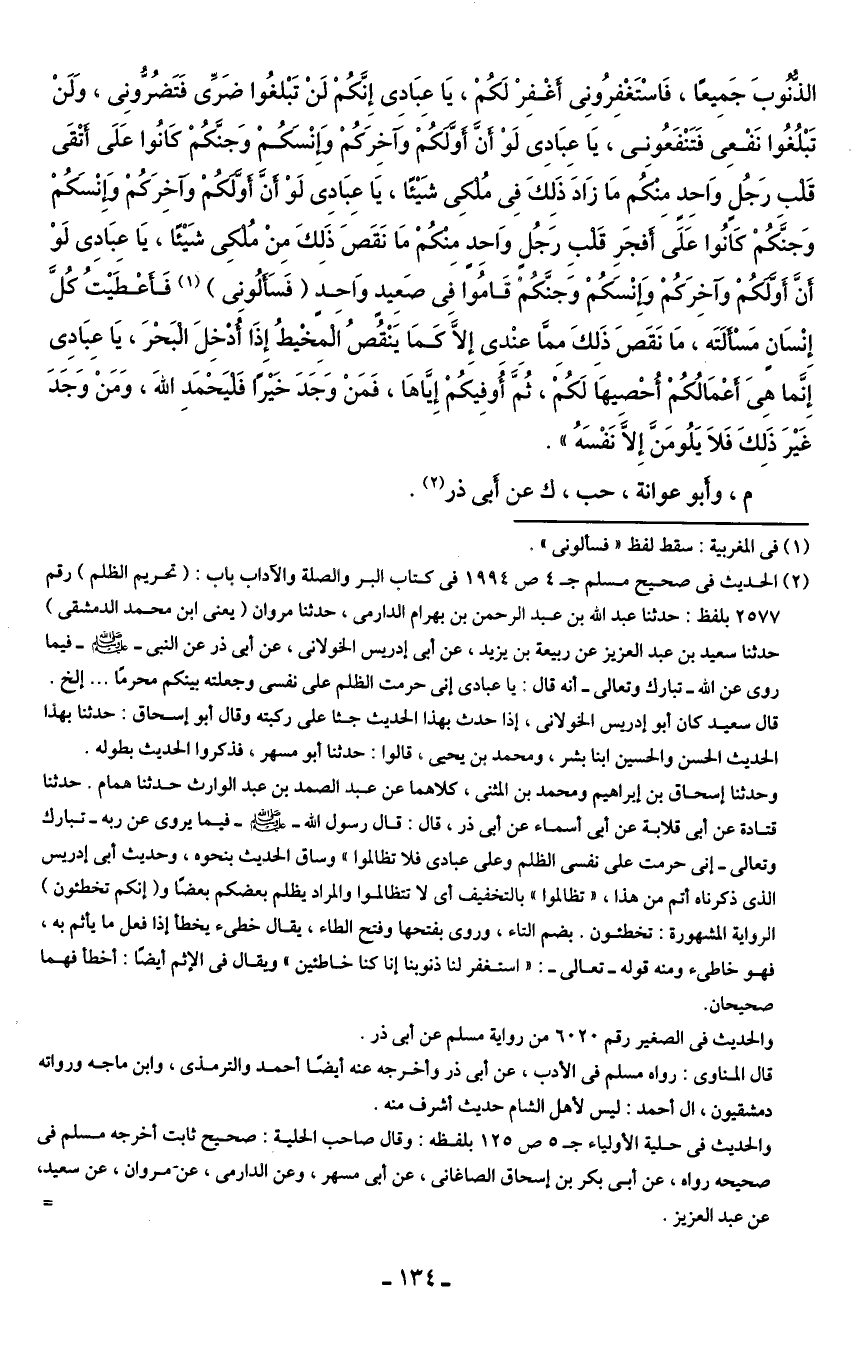 الذُّنُوبَ جَمِيعًا ، فَاسْتَغْفِرُونِى أَغْفِرْ لَكُمْ ، يَا عِبَادِى إِنَّكُمْ لَنْ تَبْلُغُوا ضَرِّى فَتَضُرُّونِى ، وَلَنْ
تَبْلُغُوا نَفْعِى فَتَنْفَعُونِى ، يَا عِبَادِى لَوْ أَنَّ أَوَّلَكُمْ وَآخِرَكُمْ وَإِنْسَكُمْ وَجِنَّكُمْ كَانُوا عَلَى أَتْقَى
قَلْبِ رَجُلٍ وَاحِدٍ مِنْكُم مَا زَادَ ذَلِكَ فِى مُلْكِى شَيْئًا ، يَا عِبَادِى لَوْ أَنَّ أَوَّلَكُمْ وَآخِرَكُمْ وَإِنْسَكُمْ
وَجِنَّكُمْ كَانُوا عَلَى أَفْجَرِ قَلْبِ رَجُلٍ وَاحِدٍ مِنْكُمْ مَا نَقَصَ ذَلِكَ مِنْ مُلْكِى شَيْئًا ، يَا عِبَادِى لَوْ
أَنَّ أَوَّلَكُمْ وَآخِرَكُمْ وَإِنْسَكُمْ وَجِنَّكُمْ قَامُوا فِى صَعِيدٍ وَاحِدٍ ( فَسَأَلُونِى ) (١) فَأَعْطَيْتُ كُلَّ
إِنْسَانٍ مَسْأَلَتَه ، مَا نَقَصَ ذَلِكَ مِمَّا عِنْدِى إِلاَّ كَمَا يَنْقُصُ الْمِخْيَطُ إِذَا أُدْخِلَ الْبَحْرَ ، يَا عِبَادِى
إِنَّما هِىَ أَعْمَالُكُمْ أُحْصِيهَا لَكُمْ ، ثُمَّ أُوفِيكُمْ إِيَّاهَا ، فَمَنْ وَجَدَ خَيْرًا فَلْيَحْمَدِ اللهَ ، وَمَنْ وَجَدَ
غَيْرَ ذَلِكَ فَلاَ يَلُومَنَّ إِلاَّ نَفْسَهُ » .
م ، وأبو عوانة ، حب ، ك عن أبى ذر(٢) .
(١) فى المغربية : سقط لفظ « فسألونى » .
(٢) الحديث فى صحيح مسلم جـ ٤ ص ١٩٩٤ فى كتاب البر والصلة والآداب باب : ( تحريم الظلم ) رقم
٢٥٧٧ بلفظ : حدثنا عبد الله بن عبد الرحمن بن بهرام الدارمى ، حدثنا مروان ( يعنى ابن محمد الدمشقى )
حدثنا سعيد بن عبد العزيز عن ربيعة بن يزيد ، عن أبى إدريس الخولانى ، عن أبى ذر عن النبى ـ ﷺ ـ فيما
روى عن الله ـ تبارك وتعالى ـ أنه قال : يا عبادى إنى حرمت الظلم على نفسى وجعلته بينكم محرمًا ... إلخ .
قال سعيد كان أبو إدريس الخولانى ، إذا حدث بهذا الحديث جثا على ركبته وقال أبو إسحاق : حدثنا بهذا
الحديث الحسن والحسين ابنا بشر ، ومحمد بن يحيى ، قالوا : حدثنا أبو مسهر ، فذكروا الحديث بطوله .
وحدثنا إسحاق بن إبراهيم ومحمد بن المثنى ، كلاهما عن عبد الصمد بن عبد الوارث حدثنا همام . حدثنا
قتادة عن أبى قلابة عن أبى أسماء عن أبى ذر ، قال : قال رسول الله ـ ﷺ ـ فيما يروى عن ربه ـ تبارك
وتعالى ـ إنى حرمت على نفسى الظلم وعلى عبادى فلا تظالموا » وساق الحديث بنحوه ، وحديث أبى إدريس
الذى ذكرناه أتم من هذا ، « تظالموا » بالتخفيف أى لا تتظالموا والمراد يظلم بعضكم بعضًا و( إنكم تخطئون )
الرواية المشهورة : تخطئون . بضم التاء ، وروى بفتحها وفتح الطاء ، يقال خطىء يخطأ إذا فعل ما يأثم به ،
فهو خاطىء ومنه قوله ـ تعالى ـ : « استغفر لنا ذنوبنا إنا كنا خاطئين » ويقال فى الإثم أيضًا : أخطأ فهما
صحيحان.
والحديث فى الصغير رقم ٦٠٢٠ من رواية مسلم عن أبى ذر .
قال المناوى : رواه مسلم فى الأدب ، عن أبى ذر وأخرجه عنه أيضًا أحمد والترمذى ، وابن ماجه ورواته
دمشقيون ، ال أحمد : ليس لأهل الشام حديث أشرف منه .
والحديث فى حلية الأولياء جـ ٥ ص ١٢٥ بلفظه : وقال صاحب الحلية : صحيح ثابت أخرجه مسلم فى
صحيحه رواه ، عن أبى بكر بن إسحاق الصاغانى ، عن أبى مسهر ، وعن الدارمى ، عن مروان ، عن سعيد،
عن عبد العزيز .
=
ـ ١٣٤ ـ